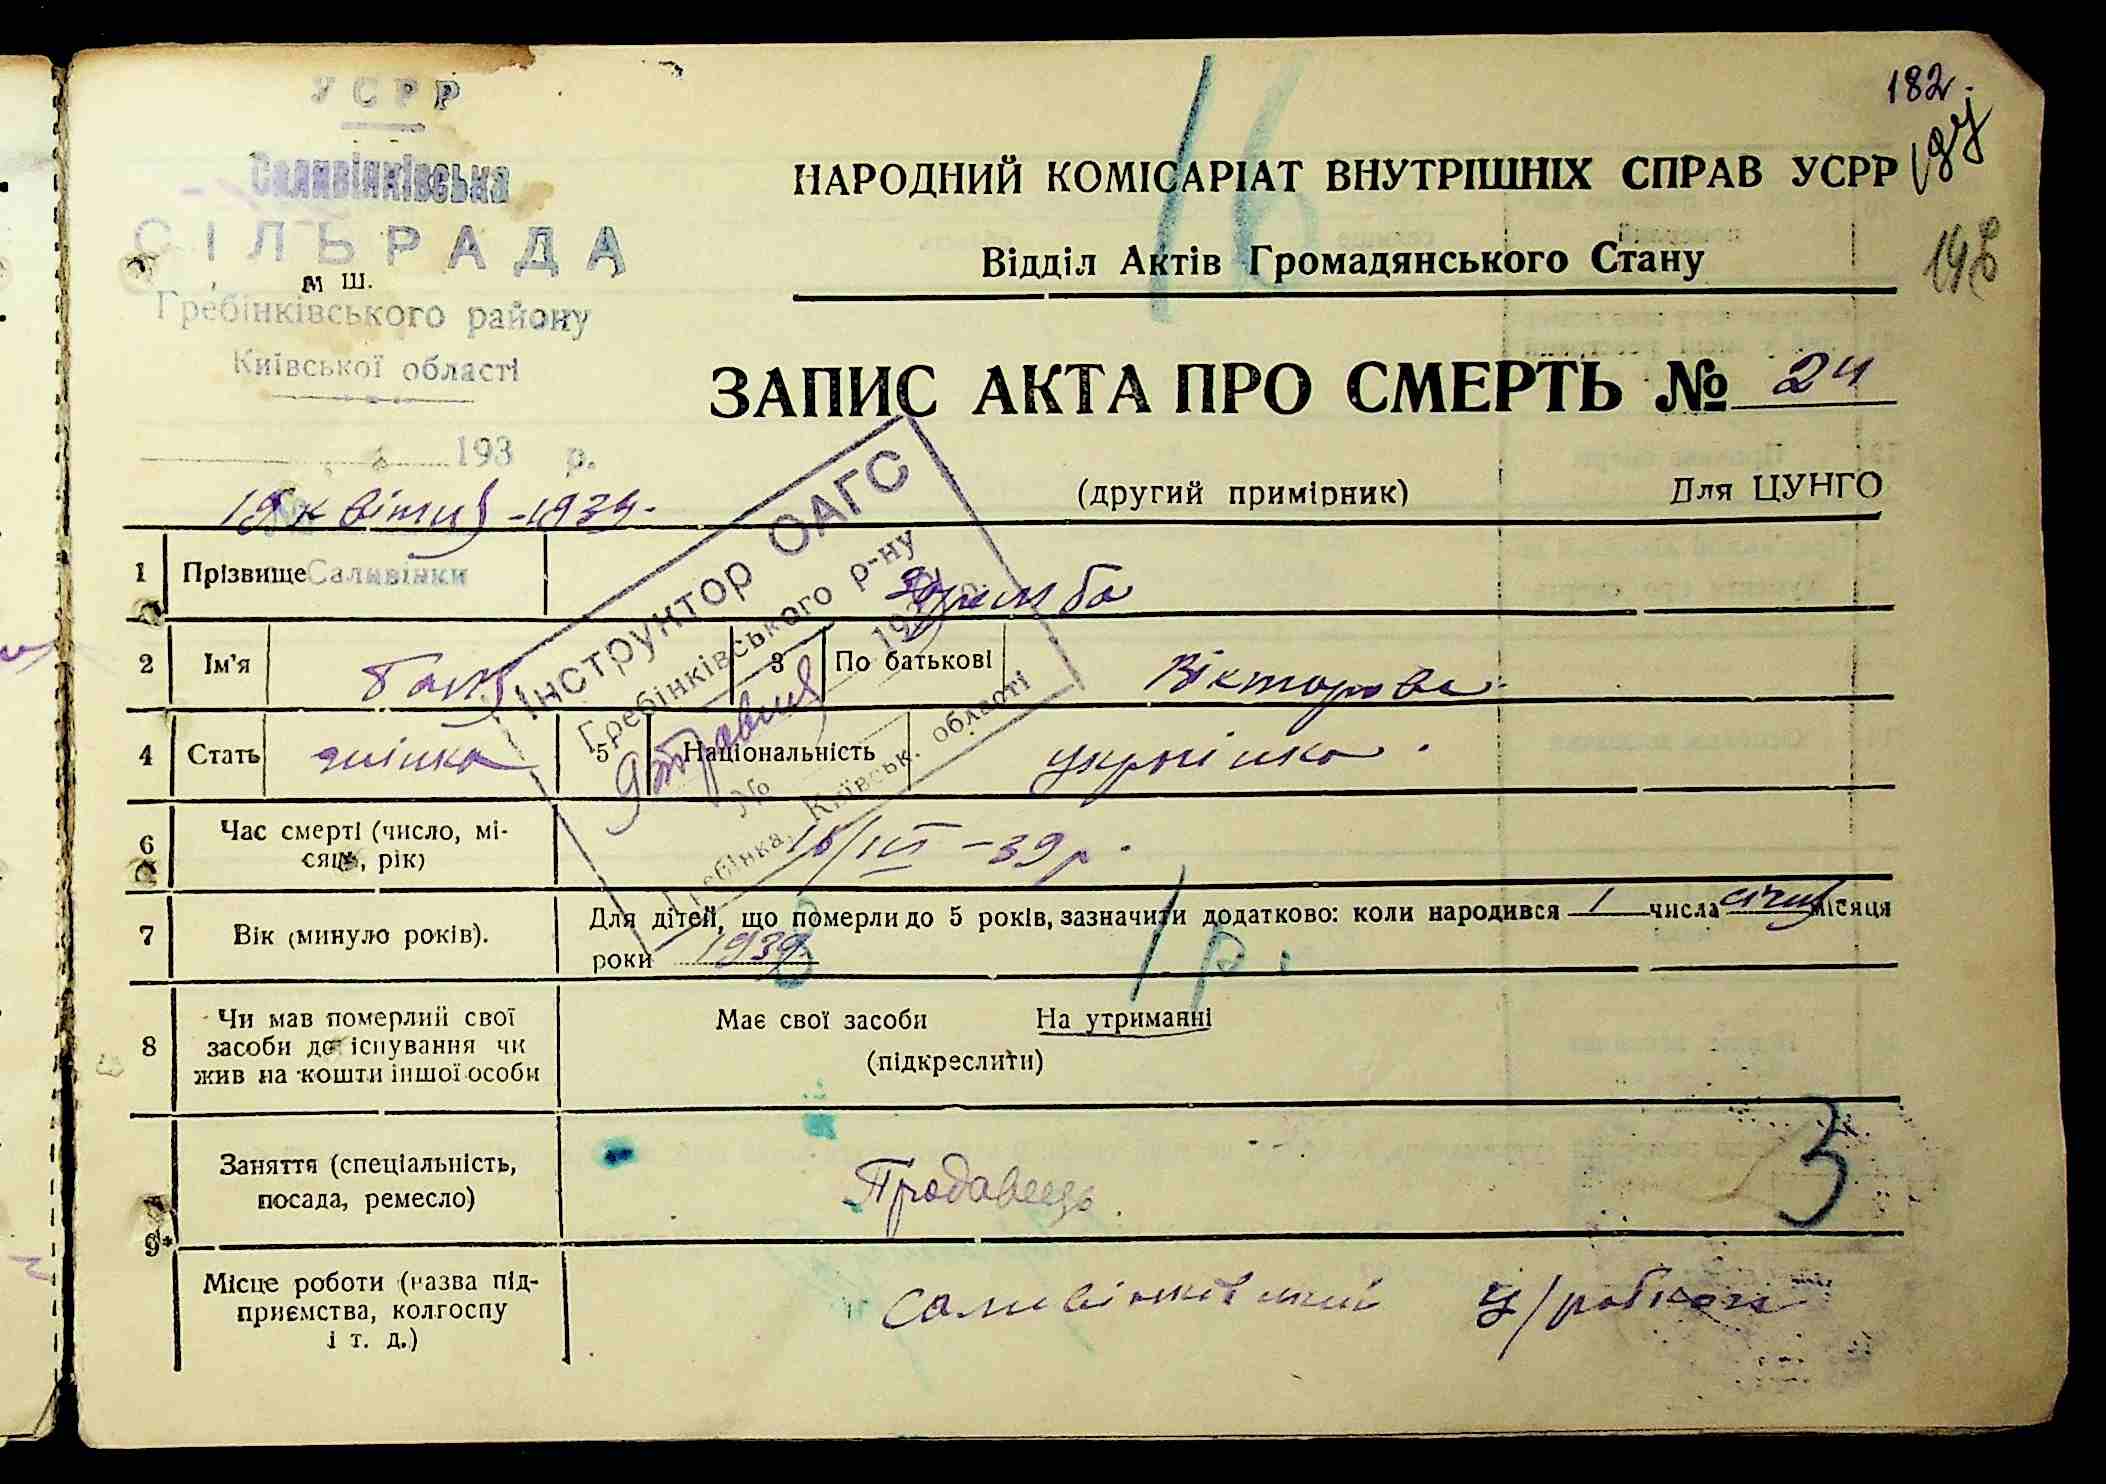 182.
УСРР
Саливінківська
СІЛЬРАДА
м ш.
Гребінківського району
Київської області
193 р.
16
НАРОДНИЙ КОМІСАРІАТ ВНУТРІШНІХ СПРАВ УСРР
Відділ Актів Громадянського Стану
ЗАПИС АКТА ПРО СМЕРТЬ № 24
(другий примірник) Для ЦУНГО
квітня -1939.
Інструктор ОАГС
Гребінківського р-ну
193 р.
№
Гребінка, Київськ. області
1 Прізвище Саливінки
2 Ім'я 3 По батькові Вікторовна
4 Стать жінка 5 Національність українка.
6 Час смерті (число, мі-
сяць, рік) /III -39 р.
7 Вік (минуло років). Для дітей, що померли до 5 років, зазначити додатково: коли народився 1 числа січня місяця
роки 1939 1 р.
8 Чи мав померлий свої
засоби до існування чи
жив на кошти іншої особи
Має свої засоби На утриманні
(підкреслити)
3
Заняття (спеціальність,
посада, ремесло) Продавець
9*
Місце роботи (назва під-
приємства, колгоспу
і т. д.) Саливінківський